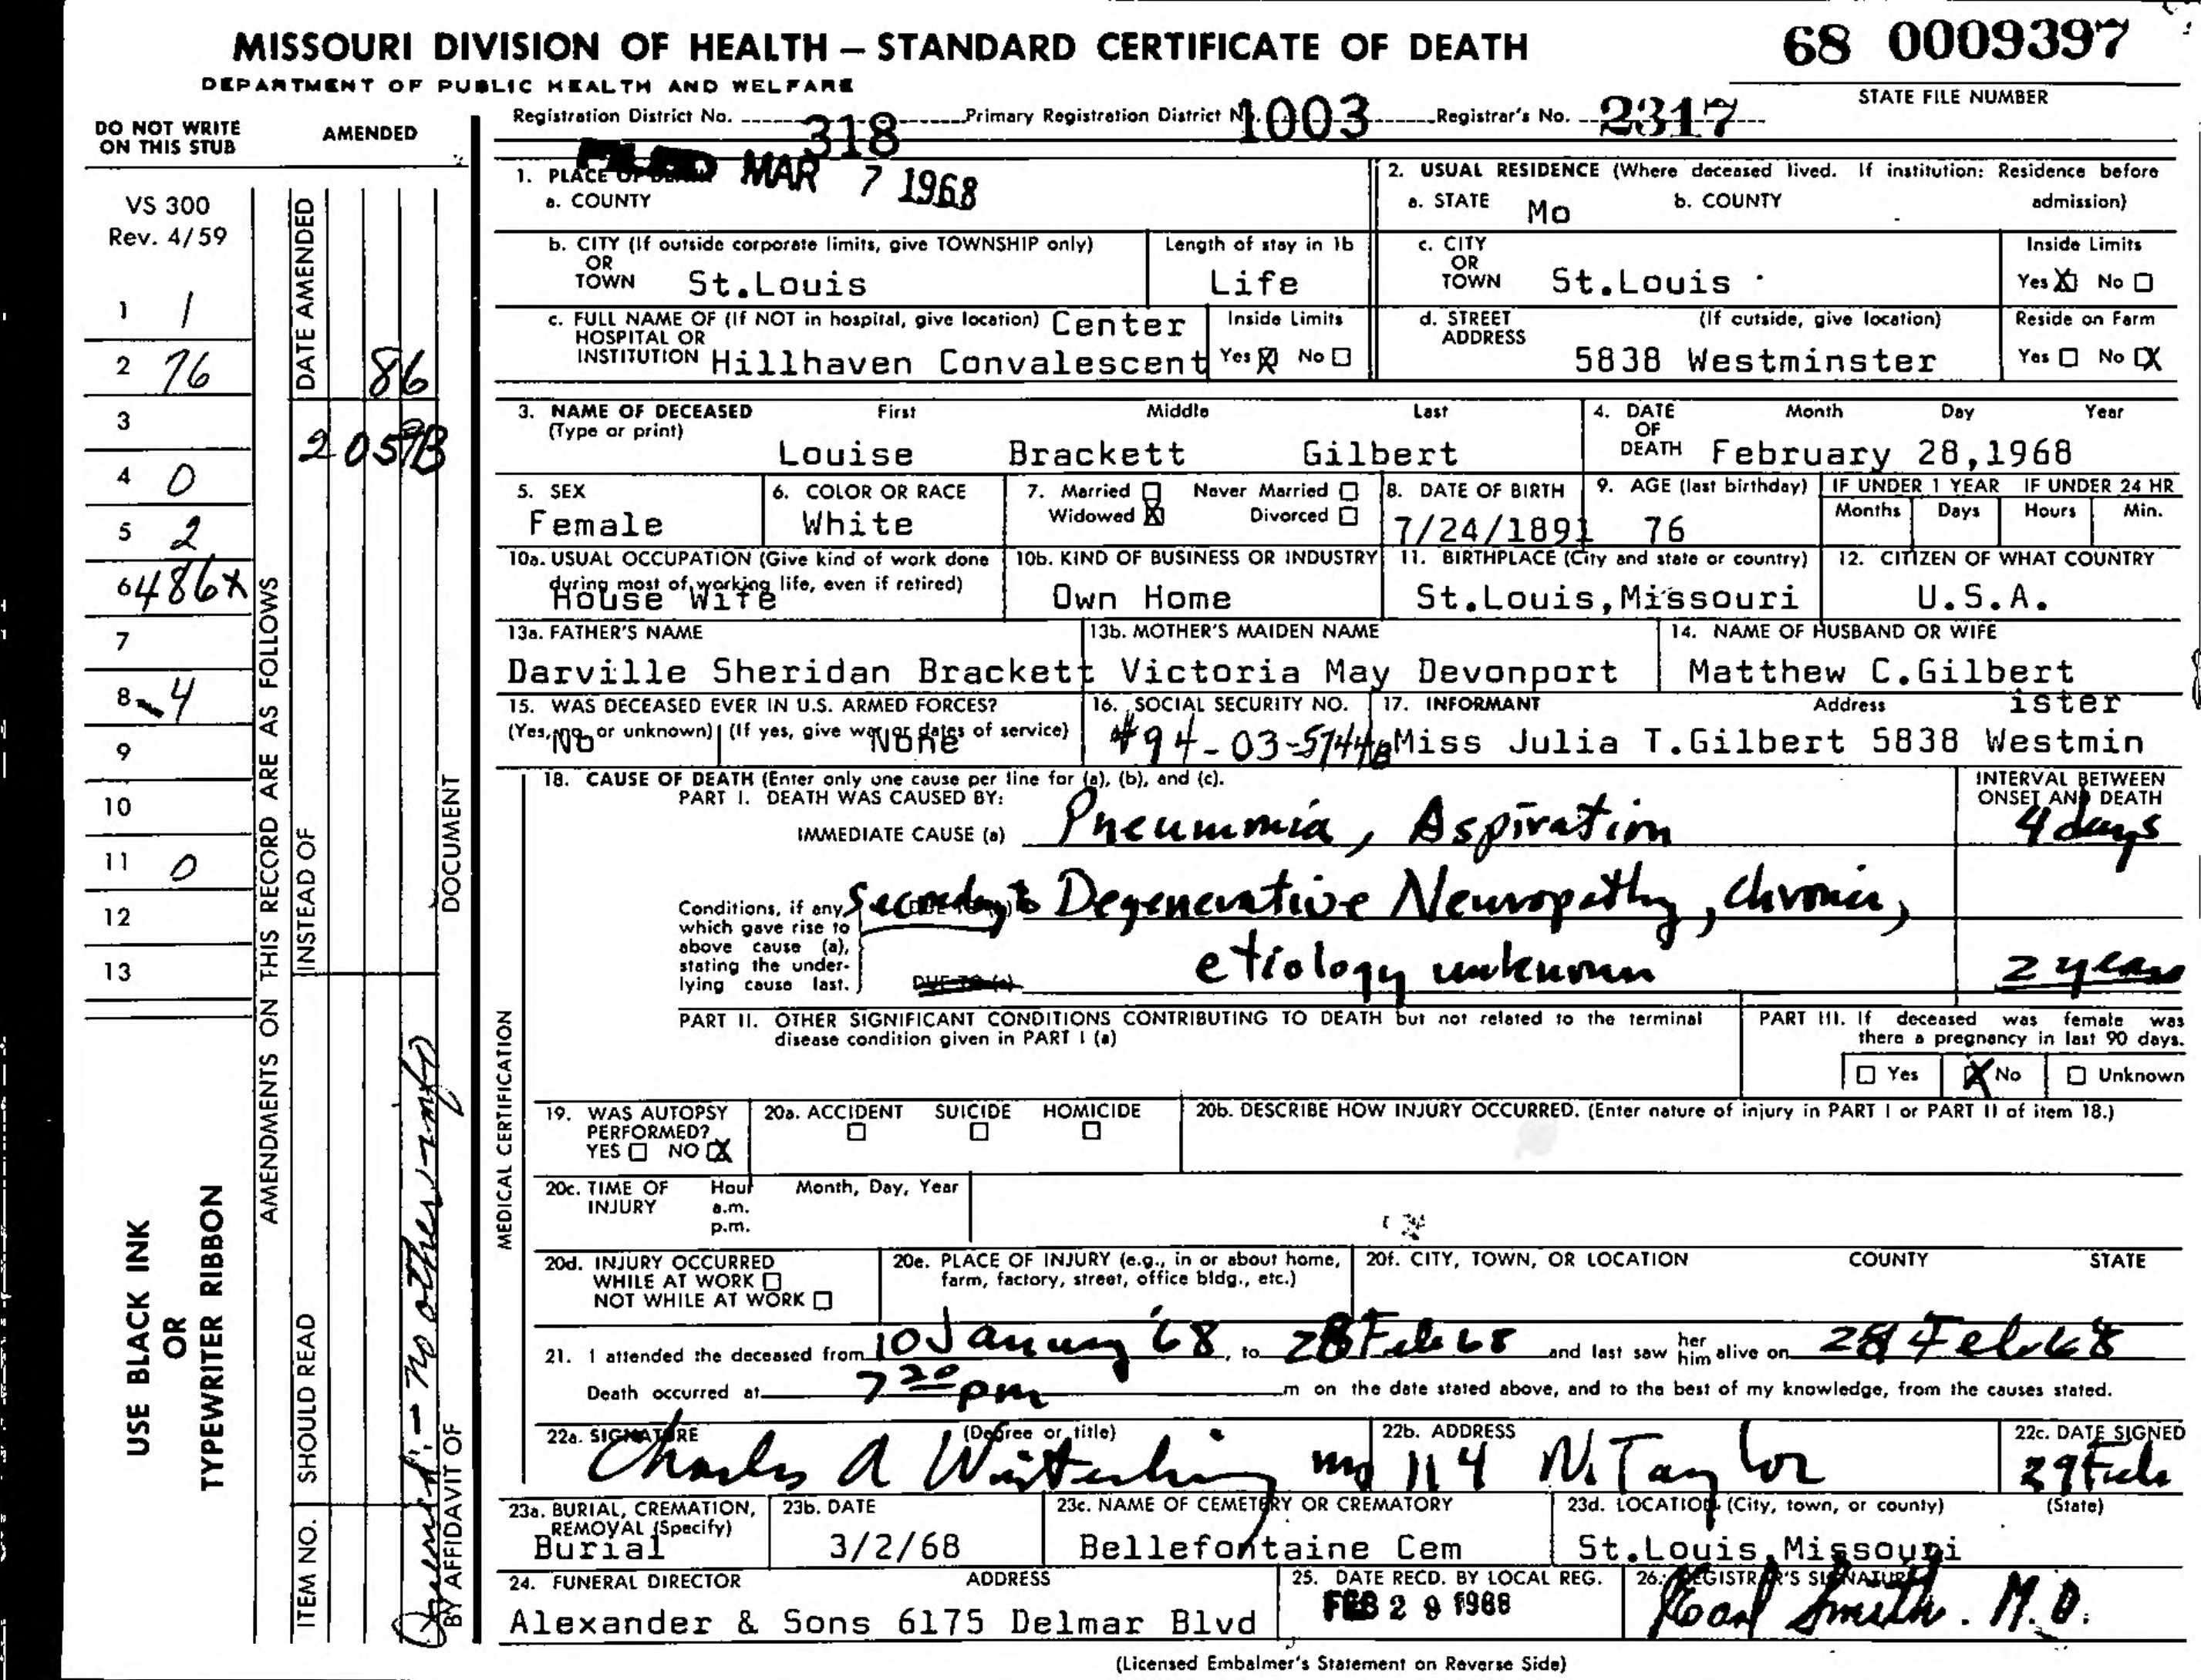 MISSOURI DIVISION OF HEALTH — STANDARD CERTIFICATE OF DEATH
68 0009397
DEPARTMENT OF PUBLIC HEALTH AND WELFARE
STATE FILE NUMBER
Registration District No. 318 Primary Registration District No. 1003 Registrar's No. 2317
DO NOT WRITE ON THIS STUB
AMENDED
VS 300
Rev. 4/59
1 1
2 76
3
4 0
5 2
6 486X
7
8 4
9
10
11 0
12
13
USE BLACK INK
OR
TYPEWRITER RIBBON
AMENDMENTS ON THIS RECORD ARE AS FOLLOWS
DATE AMENDED
86
INSTEAD OF
DOCUMENT
SHOULD READ
ITEM NO.
BY AFFIDAVIT OF
no other info
FILED MAR 7 1968
1. PLACE OF DEATH
a. COUNTY
2. USUAL RESIDENCE (Where deceased lived. If institution: Residence before admission)
a. STATE Mo b. COUNTY
b. CITY (If outside corporate limits, give TOWNSHIP only) OR TOWN St.Louis
Length of stay in 1b Life
c. CITY OR TOWN St.Louis
Inside Limits Yes X No
c. FULL NAME OF (If NOT in hospital, give location) HOSPITAL OR INSTITUTION Hillhaven Convalescent Center
Inside Limits Yes X No
d. STREET ADDRESS (If outside, give location) 5838 Westminster
Reside on Farm Yes No X
3. NAME OF DECEASED (Type or print) First Middle Last
Louise Brackett Gilbert
4. DATE OF DEATH Month Day Year
February 28,1968
5. SEX Female
6. COLOR OR RACE White
7. Married Never Married Widowed X Divorced
8. DATE OF BIRTH 7/24/1891
9. AGE (last birthday) 76
IF UNDER 1 YEAR Months Days
IF UNDER 24 HR Hours Min.
10a. USUAL OCCUPATION (Give kind of work done during most of working life, even if retired) House Wife
10b. KIND OF BUSINESS OR INDUSTRY Own Home
11. BIRTHPLACE (City and state or country) St.Louis,Missouri
12. CITIZEN OF WHAT COUNTRY U.S.A.
13a. FATHER'S NAME Darville Sheridan Brackett
13b. MOTHER'S MAIDEN NAME Victoria May Devonport
14. NAME OF HUSBAND OR WIFE Matthew C.Gilbert
15. WAS DECEASED EVER IN U.S. ARMED FORCES? (Yes, no, or unknown) (If yes, give war or dates of service) No None
16. SOCIAL SECURITY NO.
17. INFORMANT Address Miss Julia T.Gilbert 5838 Westminister
MEDICAL CERTIFICATION
18. CAUSE OF DEATH (Enter only one cause per line for (a), (b), and (c).
PART I. DEATH WAS CAUSED BY:
INTERVAL BETWEEN ONSET AND DEATH
IMMEDIATE CAUSE (a) Pneumonia, Aspiration 4 days
Conditions, if any, which gave rise to above cause (a), stating the underlying cause last.
Secondary to Degenerative Neuropathy, chronic,
DUE TO (c) etiology unknown 2 years
PART II. OTHER SIGNIFICANT CONDITIONS CONTRIBUTING TO DEATH but not related to the terminal disease condition given in PART I (a)
PART III. If deceased was female was there a pregnancy in last 90 days.
Yes X No Unknown
19. WAS AUTOPSY PERFORMED? YES NO X
20a. ACCIDENT SUICIDE HOMICIDE
20b. DESCRIBE HOW INJURY OCCURRED. (Enter nature of injury in PART I or PART II of item 18.)
20c. TIME OF INJURY Hour a.m. p.m. Month, Day, Year
20d. INJURY OCCURRED WHILE AT WORK NOT WHILE AT WORK
20e. PLACE OF INJURY (e.g., in or about home, farm, factory, street, office bldg., etc.)
20f. CITY, TOWN, OR LOCATION COUNTY STATE
21. I attended the deceased from 10 January '68, to 28 Feb 68 and last saw her him alive on 28 Feb 68
Death occurred at 7 20 pm m on the date stated above, and to the best of my knowledge, from the causes stated.
22a. SIGNATURE (Degree or title) Charles A MD
22b. ADDRESS 114 N. Taylor
22c. DATE SIGNED 29 Feb
23a. BURIAL, CREMATION, REMOVAL (Specify) Burial
23b. DATE 3/2/68
23c. NAME OF CEMETERY OR CREMATORY Bellefontaine Cem
23d. LOCATION (City, town, or county) (State) St.Louis,Missouri
24. FUNERAL DIRECTOR ADDRESS
Alexander & Sons 6175 Delmar Blvd
25. DATE RECD. BY LOCAL REG. FEB 29 1968
26. REGISTRAR'S SIGNATURE Smith. M.D.
(Licensed Embalmer's Statement on Reverse Side)